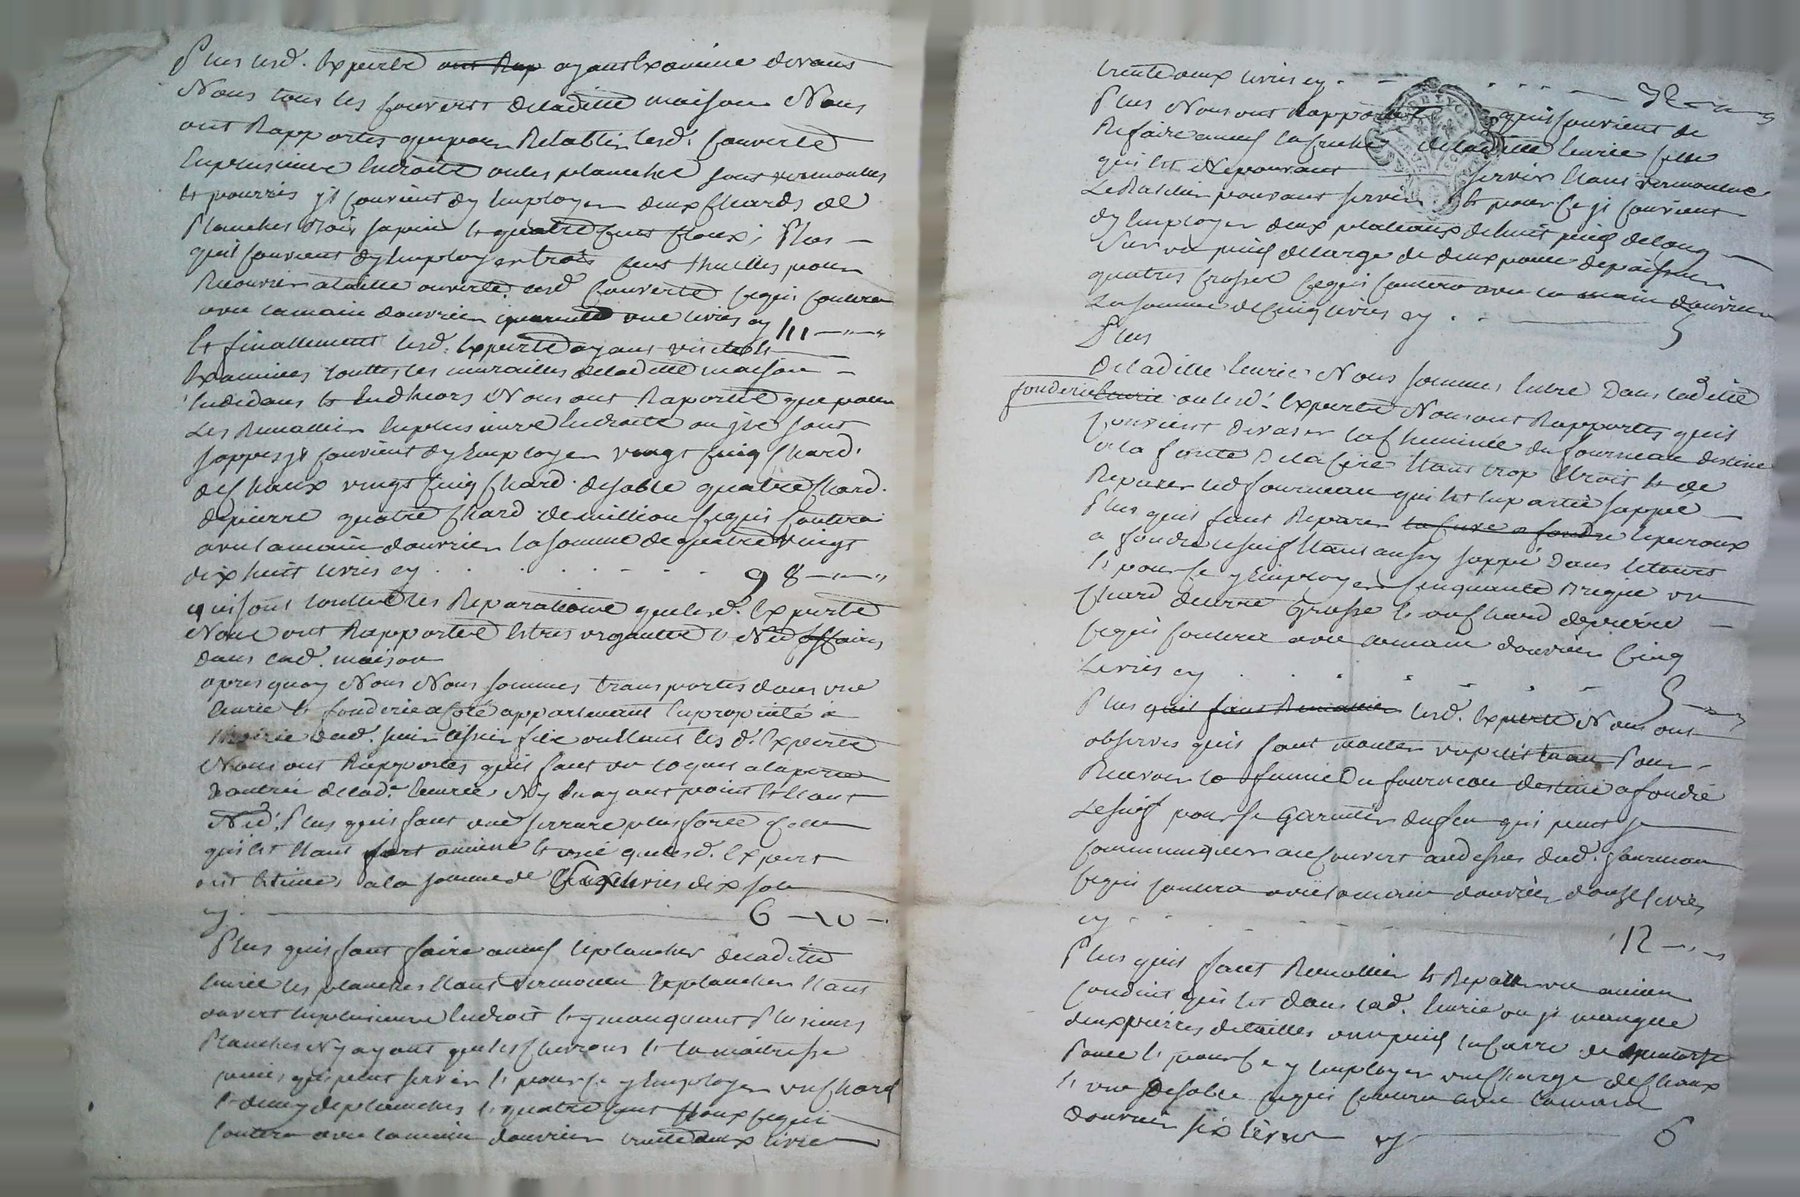 Plus lesd. Experts ont Rap ayant Examiné devant
Nous tous les couverts de ladite maison Nous
ont Rapportés que pour Retablir lesd. couverts
En plusieurs Endroits ou les planches sont vermoulues
Et pourries jl convient dy Employer deux chards de
Planches bois sapin Et quatre cent cloux; Plus
quil convient dy Employer trois cent thuilles pour
Recouvrir a taille ouverte lesd. Couverts ce qui coutera
avec la main douvrier quarante une livres cy 41
Et finallement lesd. Experts ayant visité Et
Examinés touttes les murailles de ladite maison
Endedans Et Endhiors Nous ont Raportés que pour
Les Remallier En plusieurs Endroits ou jls sont
sappés jl convient dy Employer vingt cinq chard.
de chaux vingt cinq chard. de sable quatre chard.
de pierre quatre chard. de million ce qui coutera
avec la main douvrier la somme de quatre vingt
dix huit livres cy 98
qui sont touttes les Reparations que lesd. Experts
Nous ont Rapportés Etres urgentes Et Necessaires
dans lad. maison
apres quoy Nous Nous sommes transportés dans une
Eurie Et fonderie a coté appartenant En propriété a
dud. ou Etant lesd. Experts
Nous ont Rapportés quil faut un loquet a la porte
dentrée de lad. Eurie Ny En ayant point Et Etant
Nécre. Plus quil faut une serrure plus forte celle
quil Est Etant fort ancienne Et usée que lesd. Expert
ont Estimés a la somme de six livres dix sols
cy 6 - 10 -
Plus quil faut faire a neuf le plancher de ladite
Eurie les planches Etant vermoulu le plancher Etant
ouvert En plusieurs Endroit Et y manquant Plusieurs
Planches Ny ayant que les chevrons Et la maitresse
qui peut servir Et pour ce y Employer un chard
Et demy de planches Et quatre cent cloux ce qui
coutera avec la main douvrier trente deux livres
trente deux livres cy 32
Plus Nous ont Rapportés quil convient de
Refaire a neuf la creche de ladite Eurie celle
qui Est Ne pouvant servir Etant vermoulue
Le Ratelier pouvant servir Et pour ce jl convient
dy Employer deux plateaux de huit pied de long
sur un pied de large de deux pouce depaisseur
quatres crosses ce qui coutera avec la main douvrier
La somme de cinq livres cy 5
Plus
De ladite Eurie Nous sommes Entré Dans ladite
fonderie Eurie ou lesd. Experts Nous ont Rapportés quil
convient devaser la cheminée du fourneau destiné
a la fonte De la cire Etant trop Etroit Et de
Reparer led fourneau qui Est En partie sappé
Plus quil faut Reparer la cuve a fondre le peiroux
a fondre le suif Etant aussy sappé dans le tours
Et pour ce y Employer cinquante Brique un
chard de terre Grasse Et un chard de pierre
ce qui coutera avec la main douvrier cinq
Livres cy 5
Plus quil faut Remallier lesd. Experts Nous ont
observés quil faut monter un petit tuau Pour
Recevoir la fumée Du fourneau destiné a fondre
Le suif pour se Garantir du feu qui peut se
communiquer au couvert audessus dud. fourneau
ce qui coutera avec la main douvrier douze livres
cy 12
Plus quil faut Remallier Et Reparer un ancien
conduit qui Est dans lad. Eurie ou jl manque
deux pierres de tailles dun pied En carré de quatorse
Pouce Et pour ce y Employer une charge de chaux
Et une De sable ce qui coutera avec la main
douvrier six livres cy 6